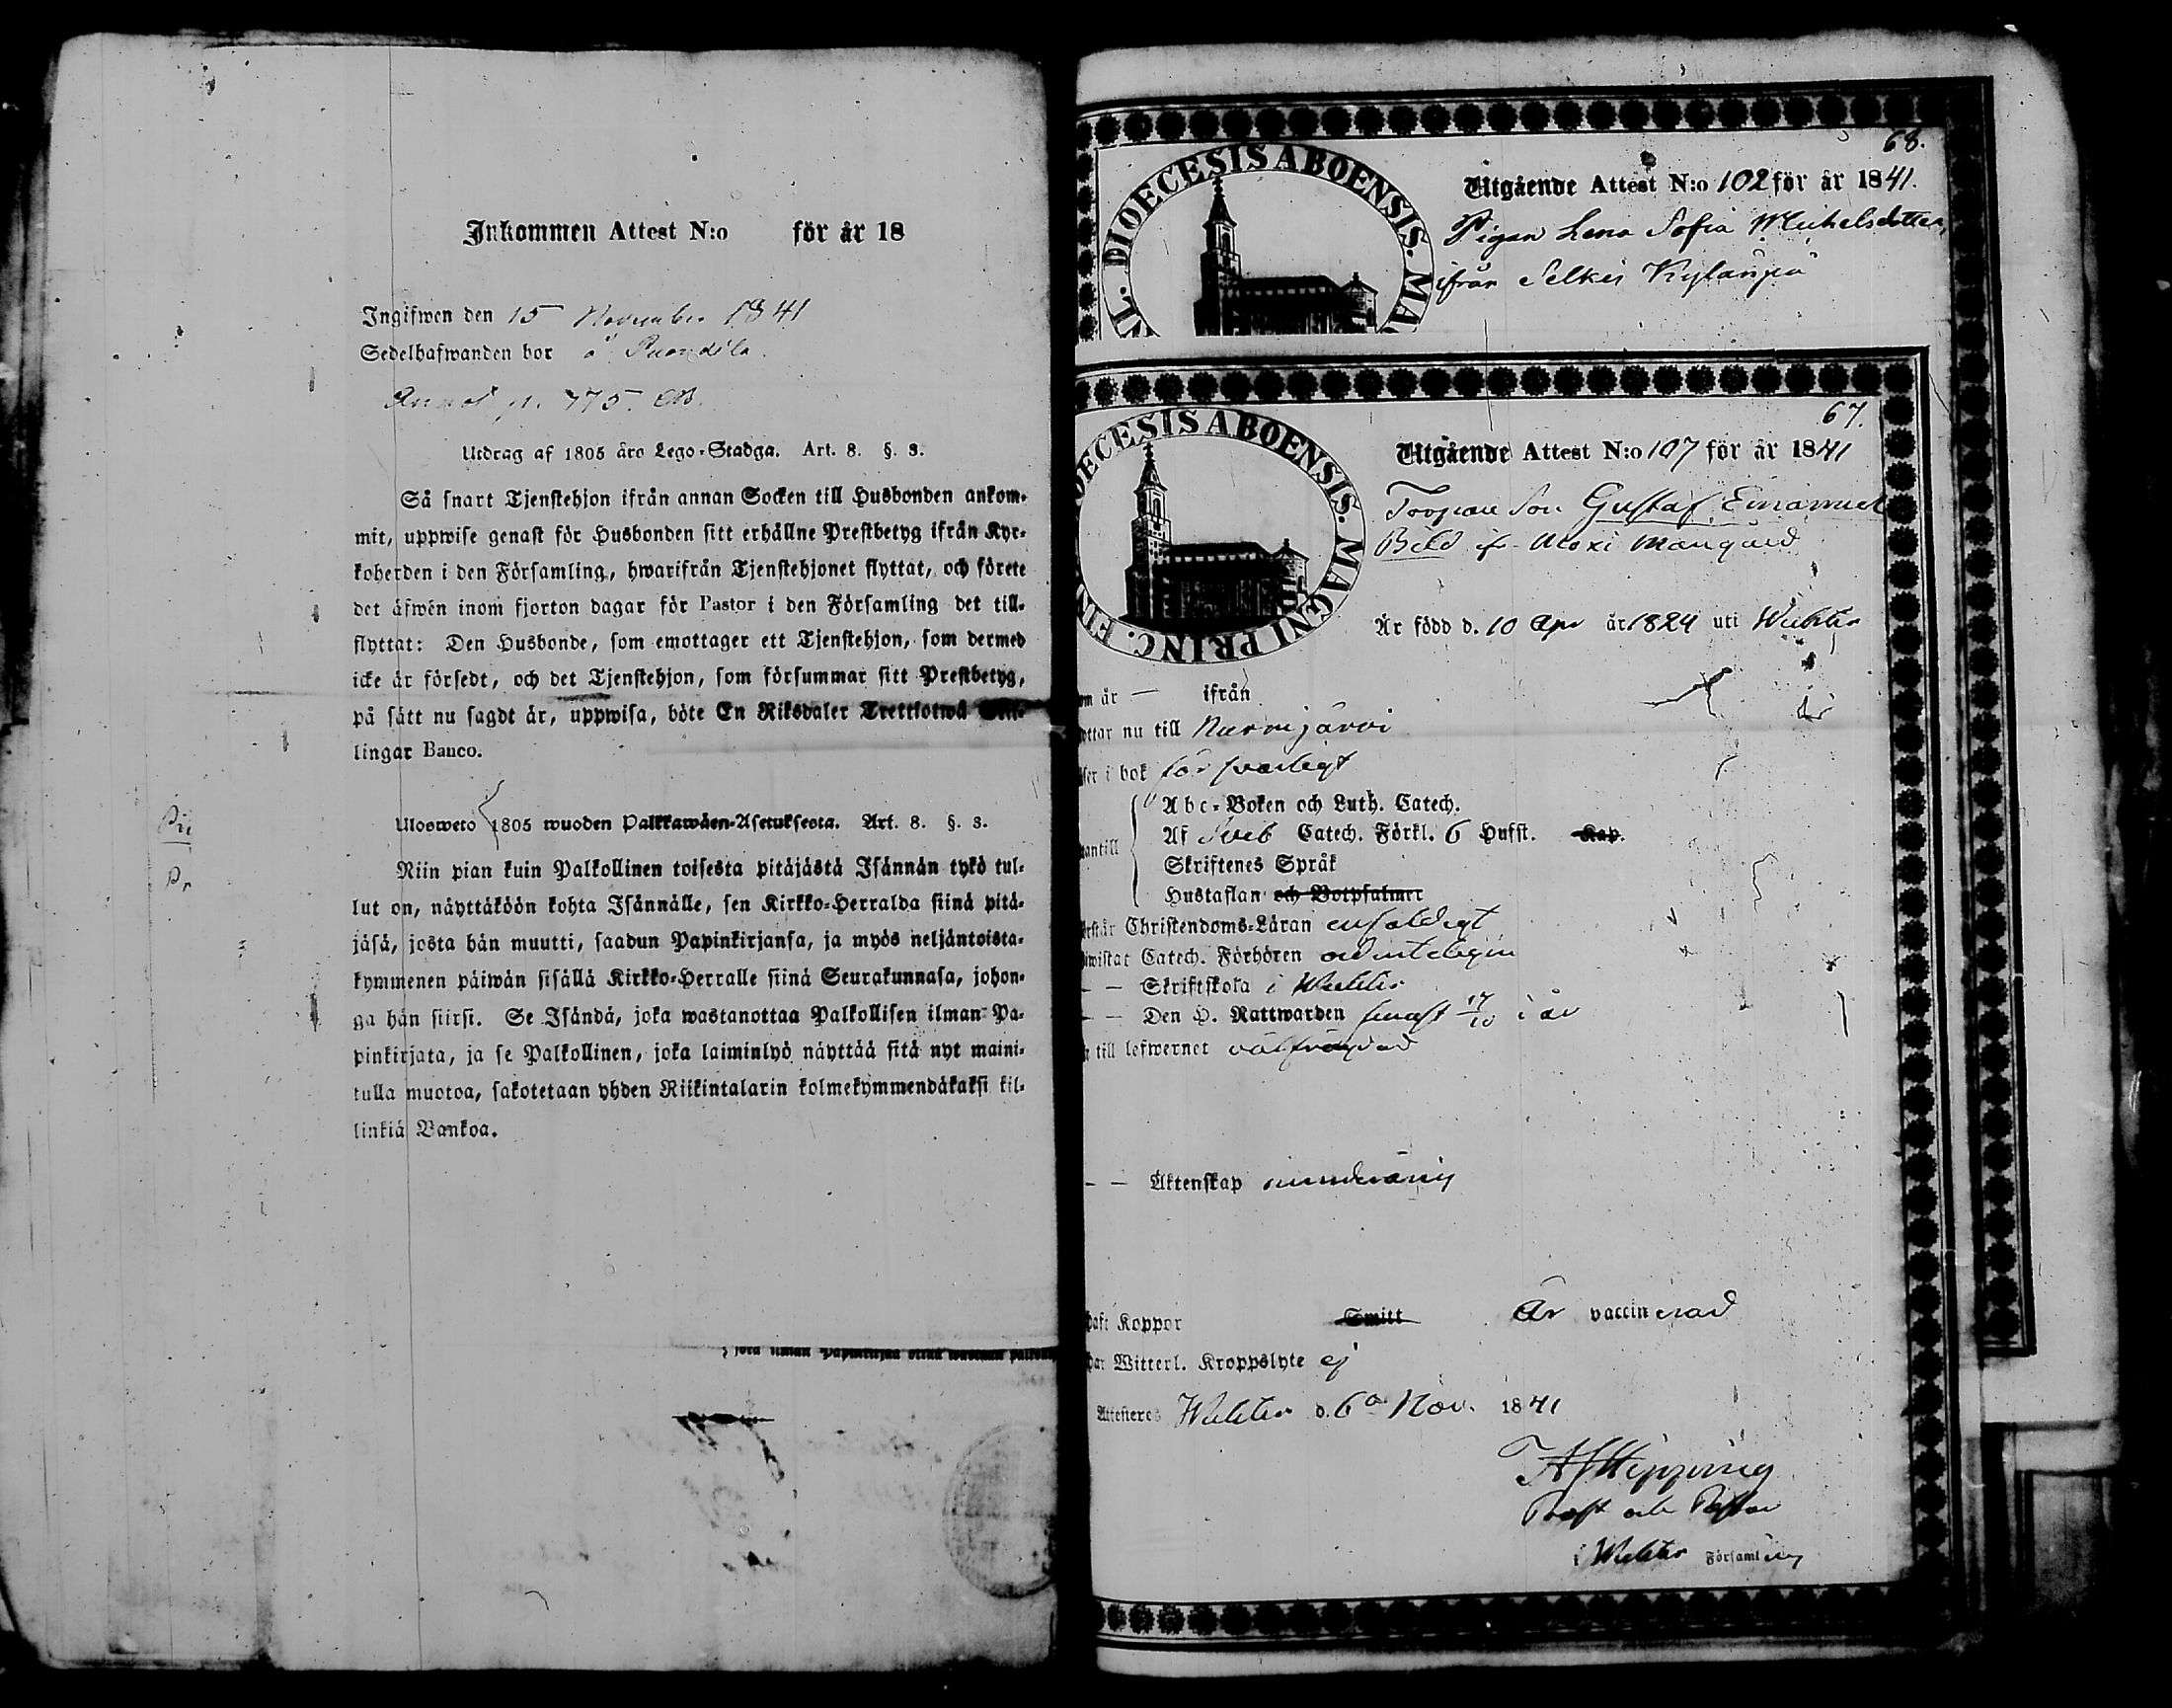 Inkommen Attest N:o för år 18
Ingifwen den 15 November 1841
Sedelhafwanden bor å
p. 775.
Utdrag af 1805 års Lego-Stadga. Art. 8. §. 3.
Så snart Tjenstehjon ifrån annan Socken till Husbonden ankom-
mit, uppwise genast för Husbonden sitt erhållne Prestbetyg ifrån Kyr-
koherden i den Församling, hwarifrån Tjenstehjonet flyttat, och förete
det äfwén inom fjorton dagar för Pastor i den Församling det till-
flyttat: Den Husbonde, som emottager ett Tjenstehjon, som dermed
icke är försedt, och det Tjenstehjon, som försummar sitt Prestbetyg,
på sätt nu sagdt är, uppwisa, böte En Riksdaler Trettiotwå
lingar Banco.
Ulosweto 1805 wuoden Palkkawäen-Asetuksesta. Art. 8. §. 3.
Niin pian kuin Palkollinen toisesta pitäjästä Isännän tykö tul-
lut on, näyttäköön kohta Isännälle, sen Kirkko-Herralda siinä pitä-
jäsä, josta hän muutti, saadun Papinkirjansa, ja myös neljäntoista-
kymmenen päiwän sisällä Kirkko-Herralle siinä Seurakunnasa, johon-
ga hän siirsi. Se Isändä, joka wastanottaa Palkollisen ilman Pa-
pinkirjata, ja se Palkollinen, joka laiminlyö näyttää sitä nyt maini-
tulla muotoa, sakotetaan yhden Riikintalarin kolmekymmendäkaksi kil-
linkiä Bankoa.
68.
DIOECESIS ABOENSIS. MA
Utgående Attest N:o 102 för år 1841.
Pigan Lena Sofia Michelsdotter
ifrån Selkis Kylänpä
67.
OECESIS ABOENSIS. MAGNI PRINC. FIN
Utgående Attest N:o 107 för år 1841
Torpare Son Gustaf Emanuel
Bild fr.
Är född d. 10 Apr år 1824 uti Wichtis
om år — ifrån
yttar nu till Nurmijärvi
äser i bok försvarligt
Abc-Boken och Luth. Catech.
Af Sveb Catech. Förkl. 6 Hufst. Kap.
antill
Skriftenes Språk
Hustaflan och Botpsalmer
örstår Christendoms-Läran enfaldigt
iwistat Catech. Förhören ordenteligen
— — Skriftskola i Wichtis
— — Den H. Nattwarden senast 17/10 i år
till lefwernet välfrägdad
— — Äktenskap minderårig
haft Koppor Smitt Är vaccinerad
har Witterl. Kroppslyte ej
Attesteres Wichtis d. 6 Nov. 1841
Hipping
Prost och Pastor
i Wichtis Församling